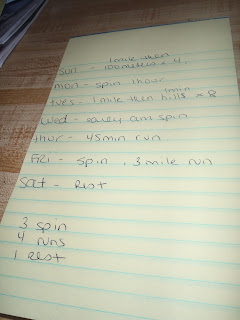 1 mile then
sun - 100 meters x 4.
mon - spin 1 hour
tues - 1 mile then 1min hills x 8
wed - early am spin
thur - 45 min run
FRI - spin, 3 mile run
sat - Rest
3 spin
4 runs
1 Rest